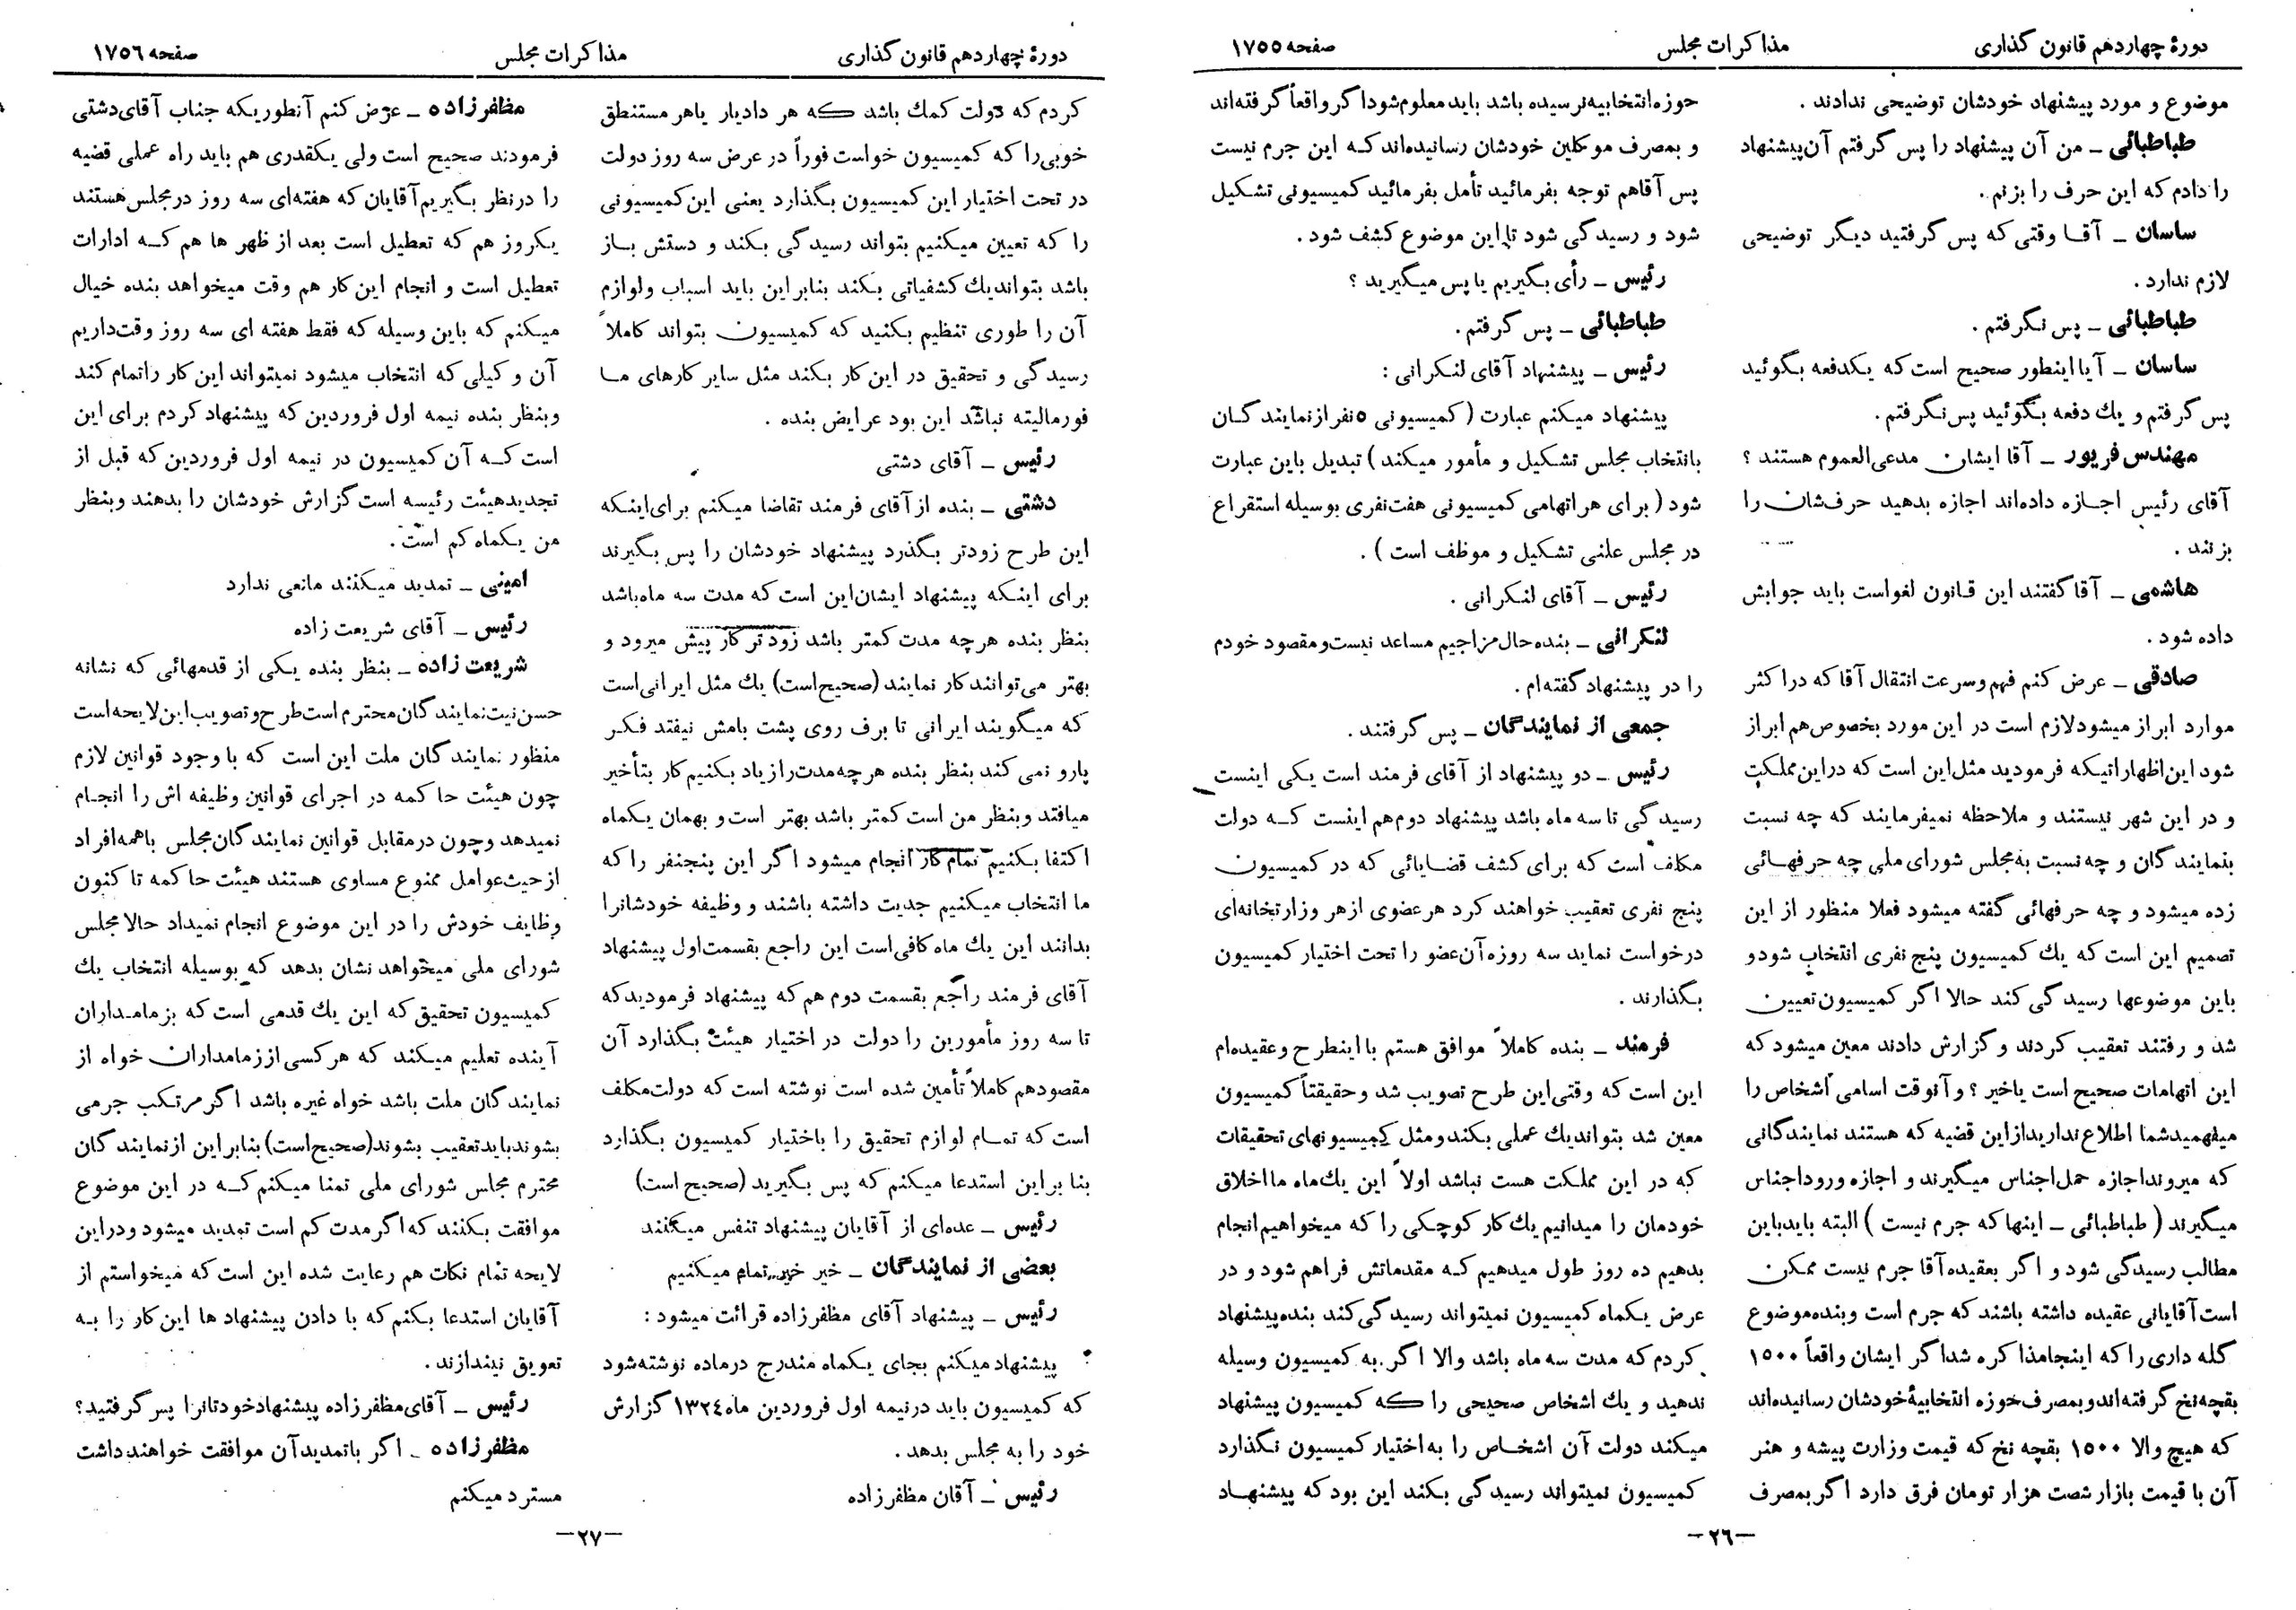 دورهٔ چهاردهم قانون گذاری
مذاکرات مجلس
صفحه ۱۷۵۵
موضوع و مورد پیشنهاد خودشان توضیحی ندادند .
طباطبائی ـ من آن پیشنهاد را پس گرفتم آن پیشنهاد
را دادم که این حرف را بزنم .
ساسان ـ آقا وقتی که پس گرفتید دیگر توضیحی
لازم ندارد .
طباطبائی ـ پس نگرفتم .
ساسان ـ آیا اینطور صحیح است که یکدفعه بگوئید
پس گرفتم و یك دفعه بگوئید پس نگرفتم .
مهندس فریور ـ آقا ایشان مدعی‌العموم هستند ؟
آقای رئیس اجازه داده‌اند اجازه بدهید حرف‌شان را
بزنند .
هاشمی ـ آقا گفتند این قانون لغواست باید جوابش
داده شود .
صادقی ـ عرض کنم فهم و سرعت انتقال آقا که در اکثر
موارد ابراز میشود لازم است در این مورد بخصوص هم ابراز
شود این اظهاراتیکه فرمودید مثل این است که در این مملکت
و در این شهر نیستند و ملاحظه نمیفرمایند که چه نسبت
بنمایندگان و چه نسبت به مجلس شورای ملی چه حرفهائی
زده میشود و چه حرفهائی گفته میشود فعلا منظور از این
تصمیم این است که یك کمیسیون پنج نفری انتخاب شود و
باین موضوعها رسیدگی کند حالا اگر کمیسیون تعیین
شد و رفتند تعقیب کردند و گزارش دادند معین میشود که
این اتهامات صحیح است یاخیر ؟ و آنوقت اسامی اشخاص را
میفهمید شما اطلاع ندارید از این قضیه که هستند نمایندگانی
که میروند اجازه حمل اجناس میگیرند و اجازه ورود اجناس
میگیرند ( طباطبائی ـ اینها که جرم نیست ) البته باید باین
مطالب رسیدگی شود و اگر بعقیده آقا جرم نیست ممکن
است آقایانی عقیده داشته باشند که جرم است و بنده موضوع
گله داری را که اینجا مذاکره شد اگر ایشان واقعاً ۱۵۰۰
بقچه نخ گرفته‌اند و بمصرف حوزه انتخابیهٔ خودشان رسانیده‌اند
که هیچ والا ۱۵۰۰ بقچه نخ که قیمت وزارت پیشه و هنر
آن با قیمت بازار شصت هزار تومان فرق دارد اگر بمصرف
حوزه انتخابیه نرسیده باشد باید معلوم شود اگر واقعاً گرفته‌اند
و بمصرف موکلین خودشان رسانیده‌اند که این جرم نیست
پس آقاهم توجه بفرمائید تأمل بفرمائید کمیسیونی تشکیل
شود و رسیدگی شود تا این موضوع کشف شود .
رئیس ـ رأی بگیریم یا پس میگیرید ؟
طباطبائی ـ پس گرفتم .
رئیس ـ پیشنهاد آقای لنکرانی :
پیشنهاد میکنم عبارت ( کمیسیونی ۵ نفر از نمایندگان
بانتخاب مجلس تشکیل و مأمور میکند ) تبدیل باین عبارت
شود ( برای هر اتهامی کمیسیونی هفت نفری بوسیله استقراع
در مجلس علنی تشکیل و موظف است ) .
رئیس ـ آقای لنکرانی .
لنکرانی ـ بنده حال مزاجیم مساعد نیست و مقصود خودم
را در پیشنهاد گفته‌ام .
جمعی از نمایندگان ـ پس گرفتند .
رئیس ـ دو پیشنهاد از آقای فرمند است یکی اینست
رسیدگی تا سه ماه باشد پیشنهاد دوم هم اینست که دولت
مکلف است که برای کشف قضایائی که در کمیسیون
پنج نفری تعقیب خواهند کرد هر عضوی از هر وزارتخانه‌ای
درخواست نماید سه روزه آن عضو را تحت اختیار کمیسیون
بگذارند .
فرمند ـ بنده کاملاً موافق هستم با اینطرح و عقیده‌ام
این است که وقتی این طرح تصویب شد و حقیقتاً کمیسیون
معین شد بتواند یك عملی بکند و مثل کمیسیونهای تحقیقات
که در این مملکت هست نباشد اولاً این یك ماه ما اخلاق
خودمان را میدانیم یك کار کوچکی را که میخواهیم انجام
بدهیم ده روز طول میدهیم که مقدماتش فراهم شود و در
عرض یکماه کمیسیون نمیتواند رسیدگی کند بنده پیشنهاد
کردم که مدت سه ماه باشد والا اگر به کمیسیون وسیله
ندهید و یك اشخاص صحیحی را که کمیسیون پیشنهاد
میکند دولت آن اشخاص را به اختیار کمیسیون نگذارد
کمیسیون نمیتواند رسیدگی بکند این بود که پیشنهاد
ـ۲۶ـ
دورهٔ چهاردهم قانون گذاری
مذاکرات مجلس
صفحه ۱۷۵۶
کردم که دولت کمك باشد که هر دادیار یا هر مستنطق
خوبی را که کمیسیون خواست فوراً در عرض سه روز دولت
در تحت اختیار این کمیسیون بگذارد یعنی این کمیسیونی
را که تعیین میکنیم بتواند رسیدگی بکند و دستش باز
باشد بتواند یك کشفیاتی بکند بنابراین باید اسباب و لوازم
آن را طوری تنظیم بکنید که کمیسیون بتواند کاملاً
رسیدگی و تحقیق در این کار بکند مثل سایر کارهای ما
فورمالیته نباشد این بود عرایض بنده .
رئیس ـ آقای دشتی
دشتی ـ بنده از آقای فرمند تقاضا میکنم برای اینکه
این طرح زودتر بگذرد پیشنهاد خودشان را پس بگیرند
برای اینکه پیشنهاد ایشان این است که مدت سه ماه باشد
بنظر بنده هرچه مدت کمتر باشد زودتر کار پیش میرود و
بهتر می‌توانند کار نمایند (صحیح است) یك مثل ایرانی است
که میگویند ایرانی تا برف روی پشت بامش نیفتد فکر
پارو نمی کند بنظر بنده هرچه مدت را زیاد بکنیم کار بتأخیر
میافتد و بنظر من است کمتر باشد بهتر است و بهمان یکماه
اکتفا بکنیم تمام کار انجام میشود اگر این پنجنفر را که
ما انتخاب میکنیم جدیت داشته باشند و وظیفه خودشانرا
بدانند این یك ماه کافی است این راجع بقسمت اول پیشنهاد
آقای فرمند راجع بقسمت دوم هم که پیشنهاد فرمودید که
تا سه روز مأمورین را دولت در اختیار هیئت بگذارد آن
مقصودهم کاملاً تأمین شده است نوشته است که دولت مکلف
است که تمام لوازم تحقیق را باختیار کمیسیون بگذارد
بنا براین استدعا میکنم که پس بگیرید (صحیح است)
رئیس ـ عده‌ای از آقایان پیشنهاد تنفس میکنند
بعضی از نمایندگان ـ خیر خیر تمام میکنیم
رئیس ـ پیشنهاد آقای مظفرزاده قرائت میشود :
پیشنهاد میکنم بجای یکماه مندرج درماده نوشته شود
که کمیسیون باید درنیمه اول فروردین ماه ۱۳۲۴ گزارش
خود را به مجلس بدهد .
رئیس ـ آقان مظفرزاده
مظفرزاده ـ عرض کنم آنطوریکه جناب آقای دشتی
فرمودند صحیح است ولی یکقدری هم باید راه عملی قضیه
را در نظر بگیریم آقایان که هفته‌ای سه روز در مجلس هستند
یکروز هم که تعطیل است بعد از ظهر ها هم که ادارات
تعطیل است و انجام این کار هم وقت میخواهد بنده خیال
میکنم که باین وسیله که فقط هفته ای سه روز وقت داریم
آن وکیلی که انتخاب میشود نمیتواند این کار را تمام کند
وبنظر بنده نیمه اول فروردین که پیشنهاد کردم برای این
است که آن کمیسیون در نیمه اول فروردین که قبل از
تجدید هیئت رئیسه است گزارش خودشان را بدهند و بنظر
من یکماه کم است .
امینی ـ تمدید میکنند مانعی ندارد
رئیس ـ آقای شریعت زاده
شریعت زاده ـ بنظر بنده یکی از قدمهائی که نشانه
حسن نیت نمایندگان محترم است طرح و تصویب این لایحه است
منظور نمایندگان ملت این است که با وجود قوانین لازم
چون هیئت حاکمه در اجرای قوانین وظیفه اش را انجام
نمیدهد و چون درمقابل قوانین نمایندگان مجلس باهمه افراد
از حیث عوامل ممنوع مساوی هستند هیئت حاکمه تا کنون
وظایف خودش را در این موضوع انجام نمیداد حالا مجلس
شورای ملی میخواهد نشان بدهد که بوسیله انتخاب یك
کمیسیون تحقیق که این یك قدمی است که بزمامداران
آینده تعلیم میکند که هر کسی از زمامداران خواه از
نمایندگان ملت باشد خواه غیره باشد اگر مرتکب جرمی
بشوند باید تعقیب بشوند (صحیح است) بنابراین از نمایندگان
محترم مجلس شورای ملی تمنا میکنم که در این موضوع
موافقت بکنند که اگر مدت کم است تمدید میشود و در این
لایحه تمام نکات هم رعایت شده این است که میخواستم از
آقایان استدعا بکنم که با دادن پیشنهاد ها این کار را به
تعویق نیندازند .
رئیس ـ آقای مظفرزاده پیشنهاد خودتانرا پس گرفتید؟
مظفرزاده ـ اگر با تمدید آن موافقت خواهند داشت
مسترد میکنم
ـ۲۷ـ